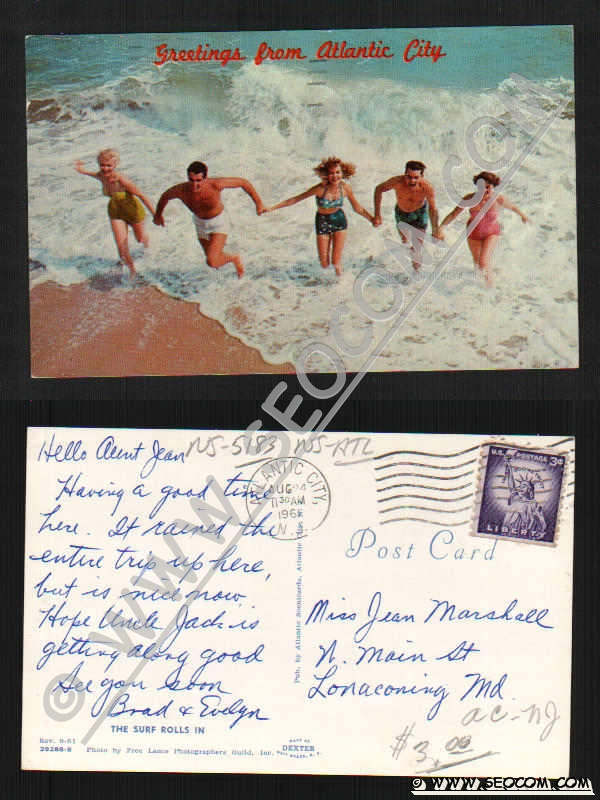 Greetings from Atlantic City
© WWW.SEOCOM.COM
Hello Aunt Jean
NJ-5183 NJ-ATL
Having a good time
here. It rained the
entire trip up here,
but is nice now
Hope Uncle Jack is
getting along good
See you soon
Brad & Evelyn
THE SURF ROLLS IN
Photo by Free Lance Photographers Guild, Inc.
DEXTER
ATLANTIC CITY,
AUG 24
11 30 AM
N.J.
U.S. POSTAGE 3¢
LIBERTY
Post Card
Miss Jean Marshall
N. Main St
Lonaconing Md.
AC-NJ
$3.00
© WWW.SEOCOM.COM